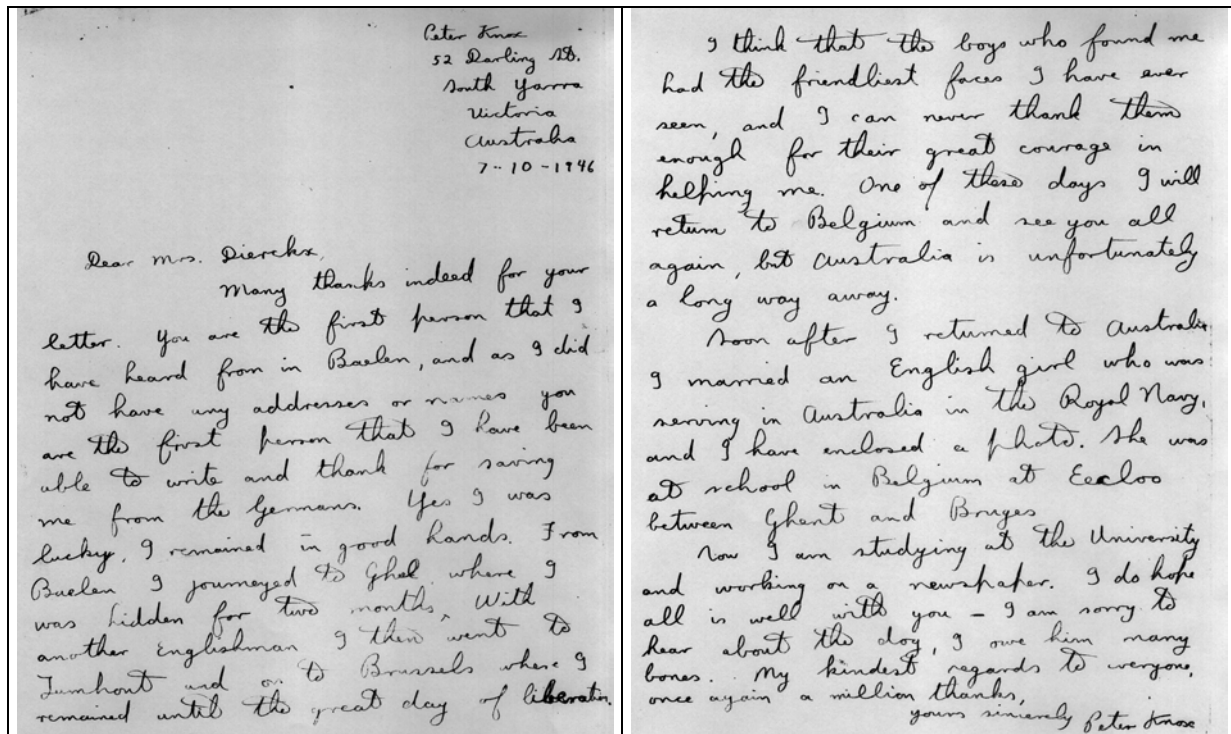 Peter Knox
52 Darling St.
South Yarra
Victoria
Australia
7-10-1946
Dear Mrs. Dierckx,
Many thanks indeed for your
letter. You are the first person that I
have heard from in Baelen, and as I did
not have any addresses or names you
are the first person that I have been
able to write and thank for saving
me from the Germans. Yes I was
lucky, I remained in good hands. From
Baelen I journeyed to Ghel where I
was hidden for two months. With
another Englishman I then went to
Turnhout and on to Brussels where I
remained until the great day of liberation.
I think that the boys who found me
had the friendliest faces I have ever
seen, and I can never thank them
enough for their great courage in
helping me. One of these days I will
return to Belgium and see you all
again, but Australia is unfortunately
a long way away.
Soon after I returned to Australia
I married an English girl who was
serving in Australia in the Royal Navy,
and I have enclosed a photo. She was
at school in Belgium at Eecloo
between Ghent and Bruges
Now I am studying at the University
and working on a newspaper. I do hope
all is well with you – I am sorry to
hear about the dog, I owe him many
bones. My kindest regards to everyone,
once again a million thanks,
yours sincerely Peter Knox